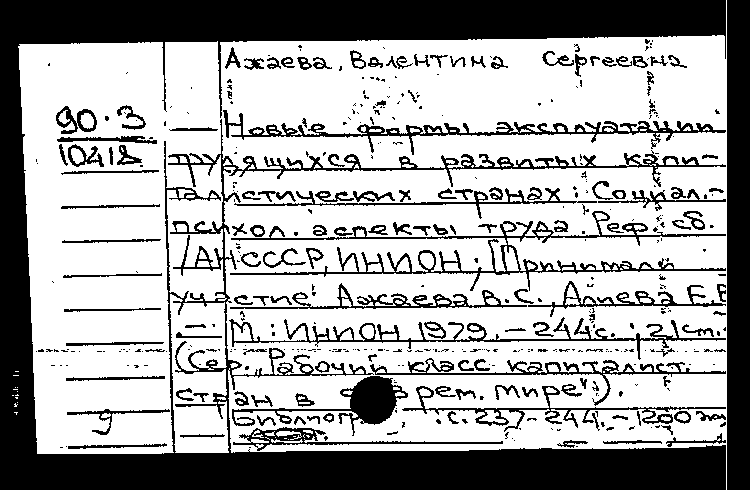 Ажаева, Валентина Сергеевна
90.3
10418
— Новые формы эксплуатации
трудящихся в развитых капи-
талистических странах: Социал.-
психол. аспекты труда. Реф. сб.
/АН СССР, ИНИОН; [Принимали
участие: Ажаева В.С., Алиева Е.
.—. М.: ИНИОН, 1979. – 244с.; 21 см.
(Сер. „Рабочий класс капиталист.
стран в соврем. мире").
9
Библиогр : с. 237-244. – 1200